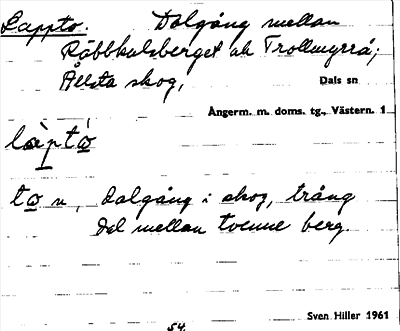 Lappto. Dalgång mellan
Räbbkulsberget och Trollmyrrå;
Ållsta skog, Dals sn
Ångerm. m. doms. tg., Västern. 1
làptò
to n, dalgång i skog, trång
del mellan tvenne berg.
Sven Hiller 1961
54.